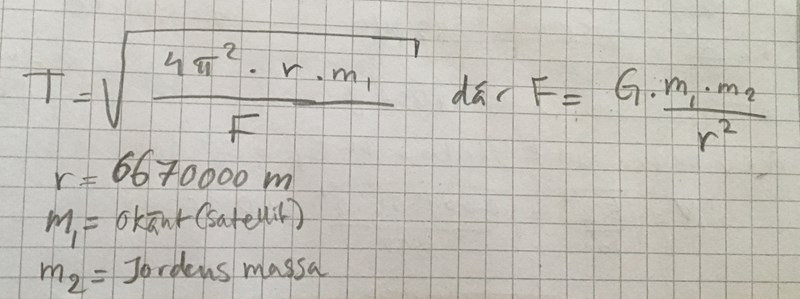 T = √(4π² · r · m₁ / F) där F = G · m₁ · m₂ / r²
r = 6670000 m
m₁ = okänt (satellit)
m₂ = Jordens massa